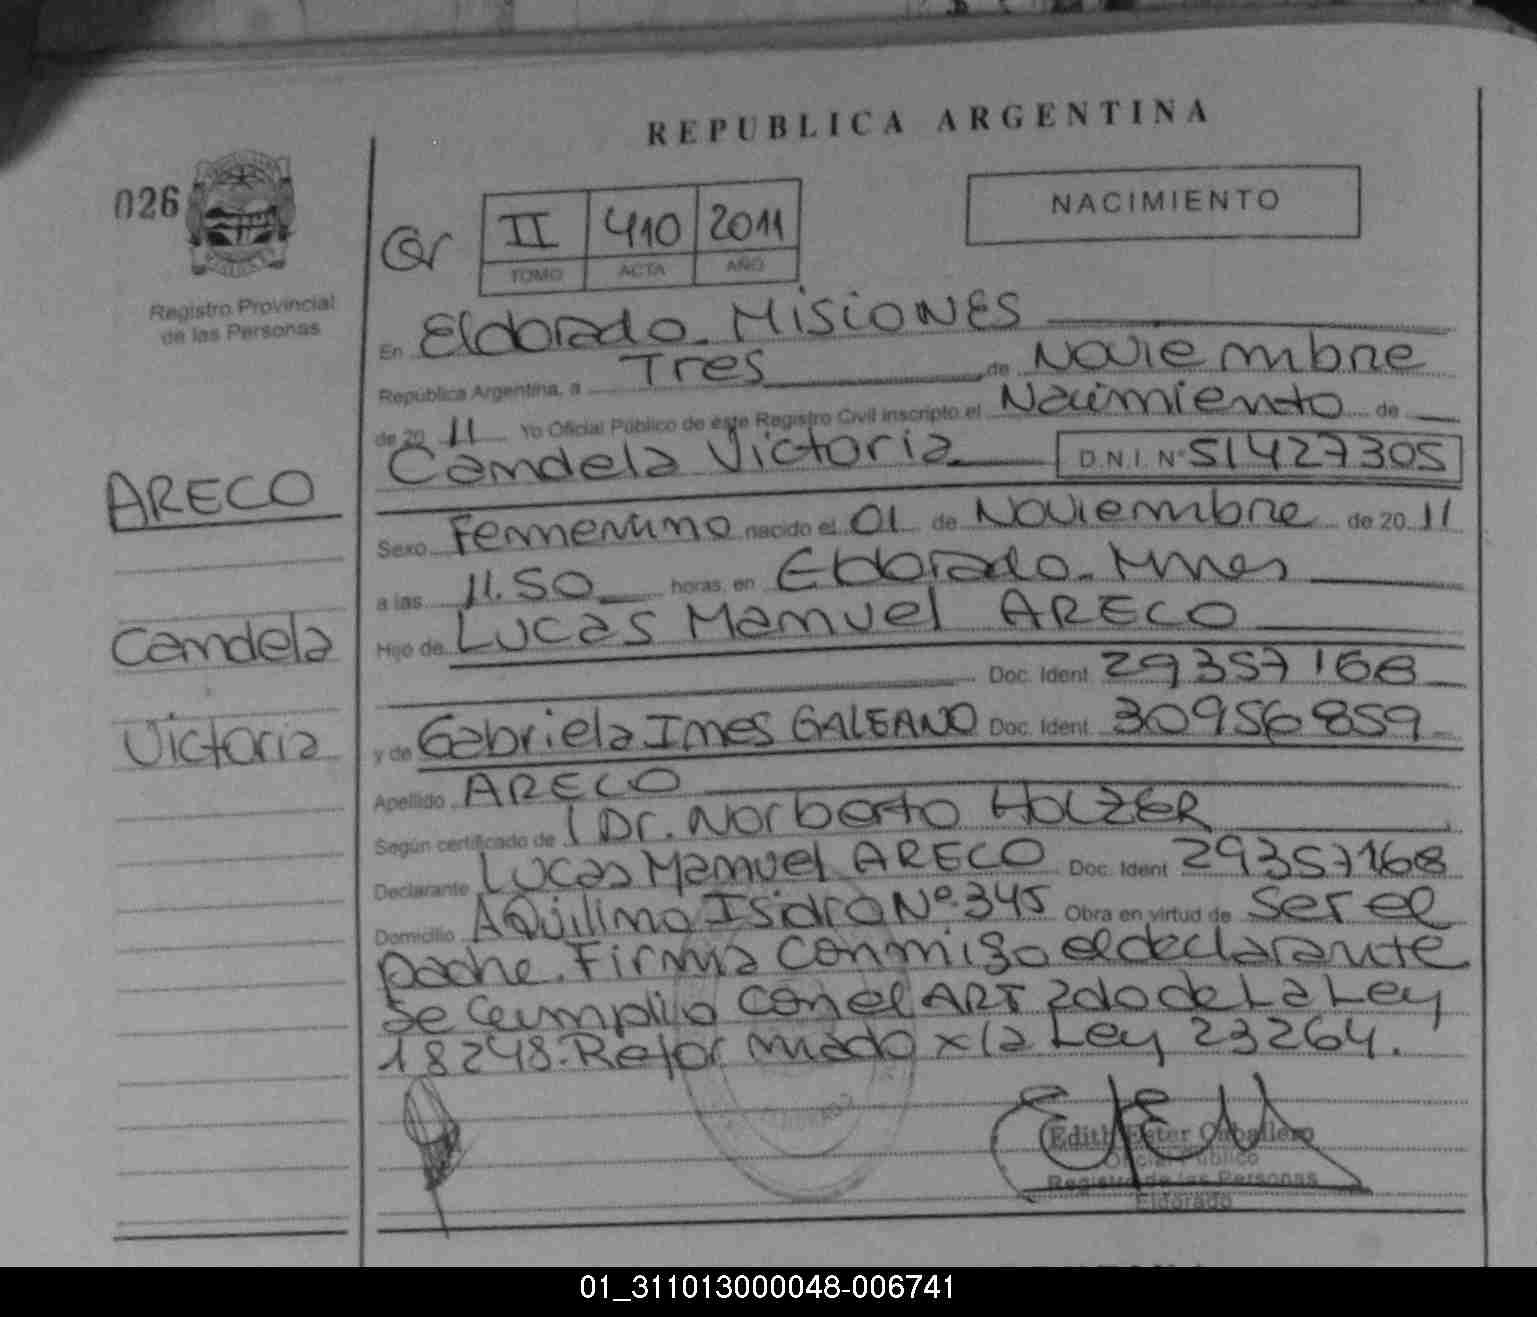 REPUBLICA ARGENTINA
026
NACIMIENTO
II 410 2011
TOMO ACTA AÑO
Registro Provincial
de las Personas
En Eldorado. Misiones
República Argentina, a Tres de Noviembre
de 20 11 Yo Oficial Público de este Registro Civil inscripto el Nacimiento de
Candela Victoria D.N.I. Nº 51427305
ARECO
Sexo Femenino nacido el 01 de Noviembre de 20 11
a las 11.50 horas, en Eldorado. Mnes
Candela
Hijo de Lucas Manuel ARECO
Doc. Ident. 29357168
Victoria
y de Gabriela Ines GALEANO Doc. Ident. 30956859
Apellido ARECO
Según certificado de Dr. Norberto HOLZER
Declarante Lucas Manuel ARECO Doc. Ident 29357168
Domicilio Aquilino Isidro Nº 345 Obra en virtud de ser el
padre. Firma conmigo el declarante
se cumplio con el ART 2do de La Ley
18248. Reformado x la Ley 23264.
Edith Ester Caballero
Oficial Público
Registro de las Personas
Eldorado
01_311013000048-006741